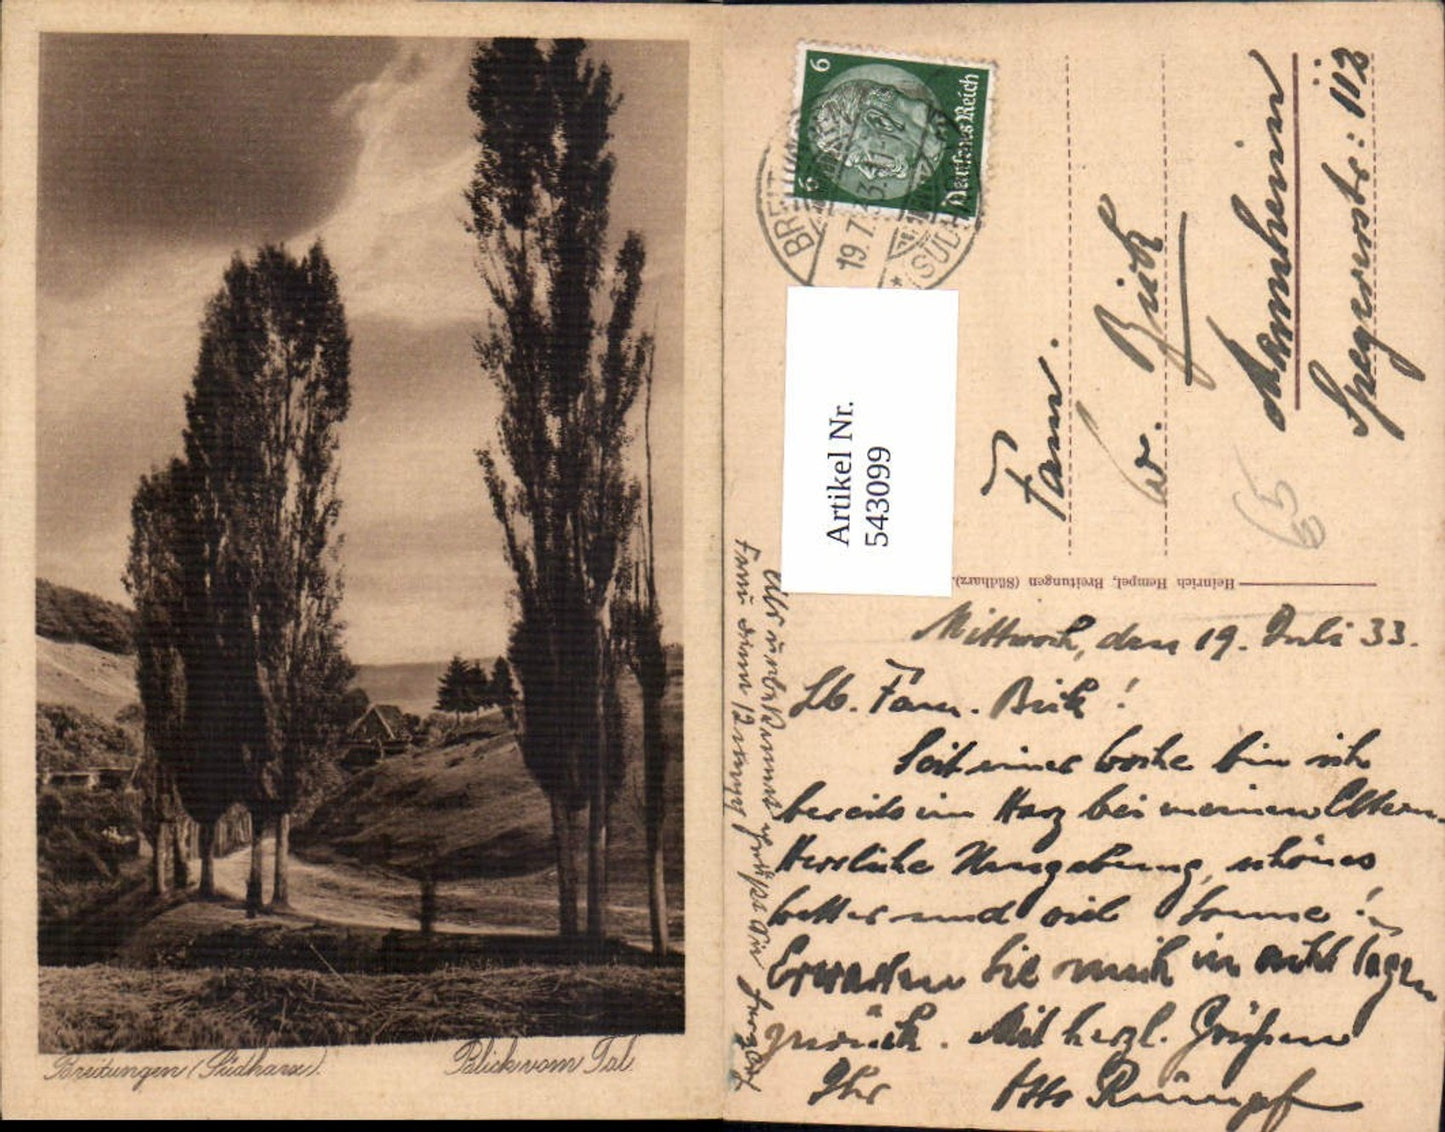 Breitungen (Südharz).
Blick vom Tal.
6
6
Deutsches Reich
BREITUNGEN
19.7.33.
(SÜDHARZ)
Artikel Nr.
543099
Fam.
W. Bick
Mannheim
112
65
Heinrich Hempel, Breitungen (Südharz).
Mittwoch, den 19. Juli 33.
Lb. Fam. Bick!
Seit einer Woche bin ich
bereits im Harz bei meinen Eltern.
Herrliche Umgebung, schönes
Wetter und viel Sonne!
Erwarten Sie mich in acht Tagen
zurück. Mit herzl. Grüßen
Ihr Otto Rümpf
Als unbekannt grüßt Sie herzl.
Fam Rümpf